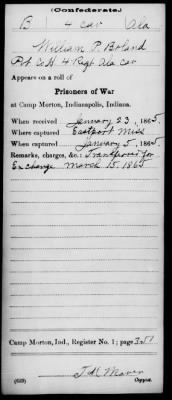 (Confederate.)
B 4 Cav Ala
William P. Borland
Pvt Co H 4 Regt Ala Cav
Appears on a roll of
Prisoners of War
at Camp Morton, Indianapolis, Indiana.
When received January 23, 1865.
Where captured Eastport Miss
When captured January 5, 1865.
Remarks, charges, &c.: Transferred for
Exchange March 15. 1865
Camp Morton, Ind., Register No. 1; page 351
(639)
Copyist.